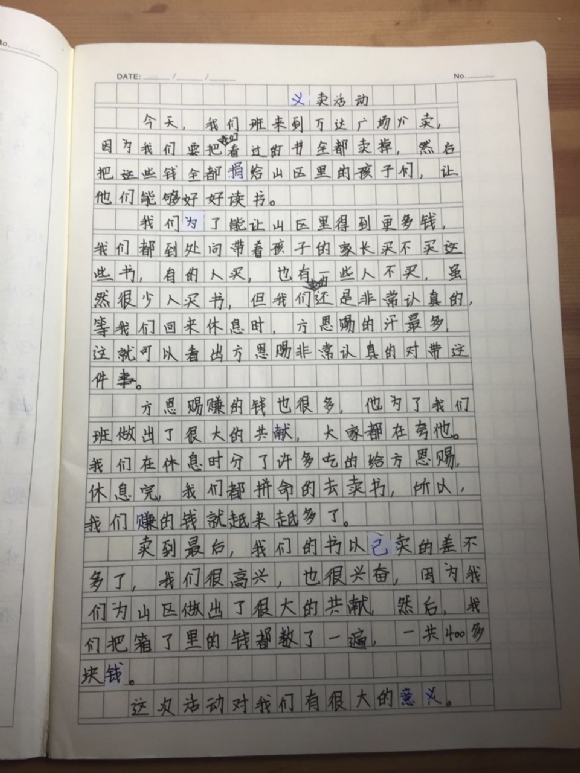 No.
DATE: / /
No.
义卖活动
今天，我们班来到万达广场义卖，
因为我们要把看过的书全都卖掉，然后
把这些钱全都捐给山区里的孩子们，让
他们能够好好读书。
我们为了能让山区里得到更多钱，
我们都到处问带着孩子的家长买不买这
些书，有的人买，也有一些人不买，虽
然很少人买书，但我们还是非常认真的，
等我们回来休息时，方思赐的汗最多，
这就可以看出方思赐非常认真的对带这
件事。
方思赐赚的钱也很多，他为了我们
班做出了很大的共献，大家都在夸他。
我们在休息时分了许多吃的给方思赐，
休息完，我们都拼命的去卖书，所以，
我们赚的钱就越来越多了。
卖到最后，我们的书以己卖的差不
多了，我们很高兴，也很兴奋，因为我
们为山区做出了很大的共献，然后，我
们把箱了里的钱都数了一遍，一共400多
块钱。
这次活动对我们有很大的意义。